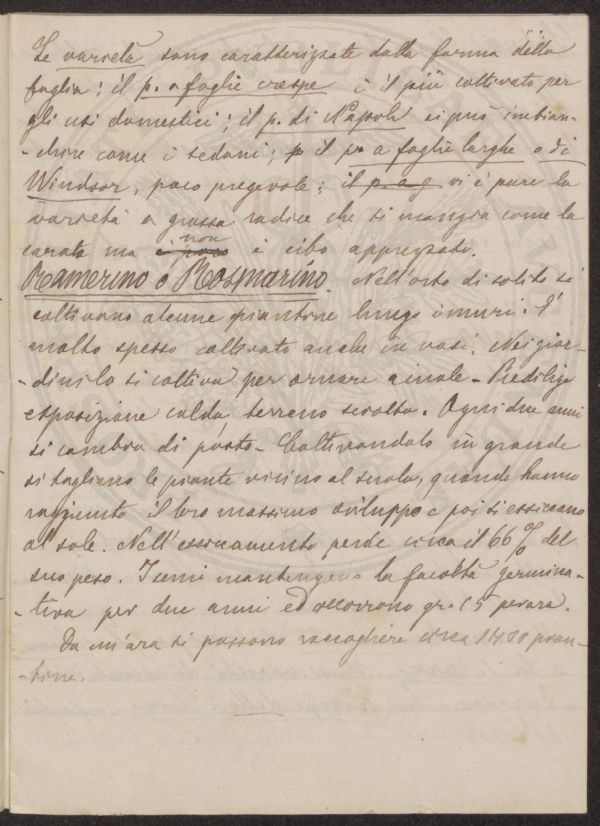 Le varietà sono caratterizzate dalla forma della
foglia: il p. a foglie crespe è il più coltivato per
gli usi domestici; il p. di Napoli si può imbian-
-chire come i sedani; il p. a foglie larghe o di
Windsor, poco pregevole; il p. a g vi è pure la
varietà a grossa radice che si mangia come la
carota ma è poco non è cibo apprezzato.
Ramerino o Rosmarino. Nell'orto di solito si
coltivano alcune piantone lungo i muri. È
molto spesso coltivato anche in vasi. Nei giar-
-dini lo si coltiva per ornare aiuole. Predilige
esposizione calda, terreno sciolto. Ogni due anni
si cambia di posto. Coltivandolo in grande
si tagliano le piante vicino al suolo, quando hanno
raggiunto il loro massimo sviluppo e poi si essiccano
al sole. Nell'essiccamento perde circa il 66% del
suo peso. I semi mantengono la facoltà germina-
-tiva per due anni ed occorrono gr. 15 per ara.
Da un'ara si possono raccogliere circa 1400 pian-
-tine.